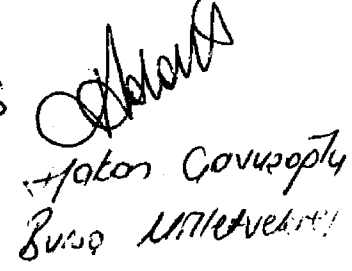 Hakan Çavuşoğlu
Bursa Milletvekili